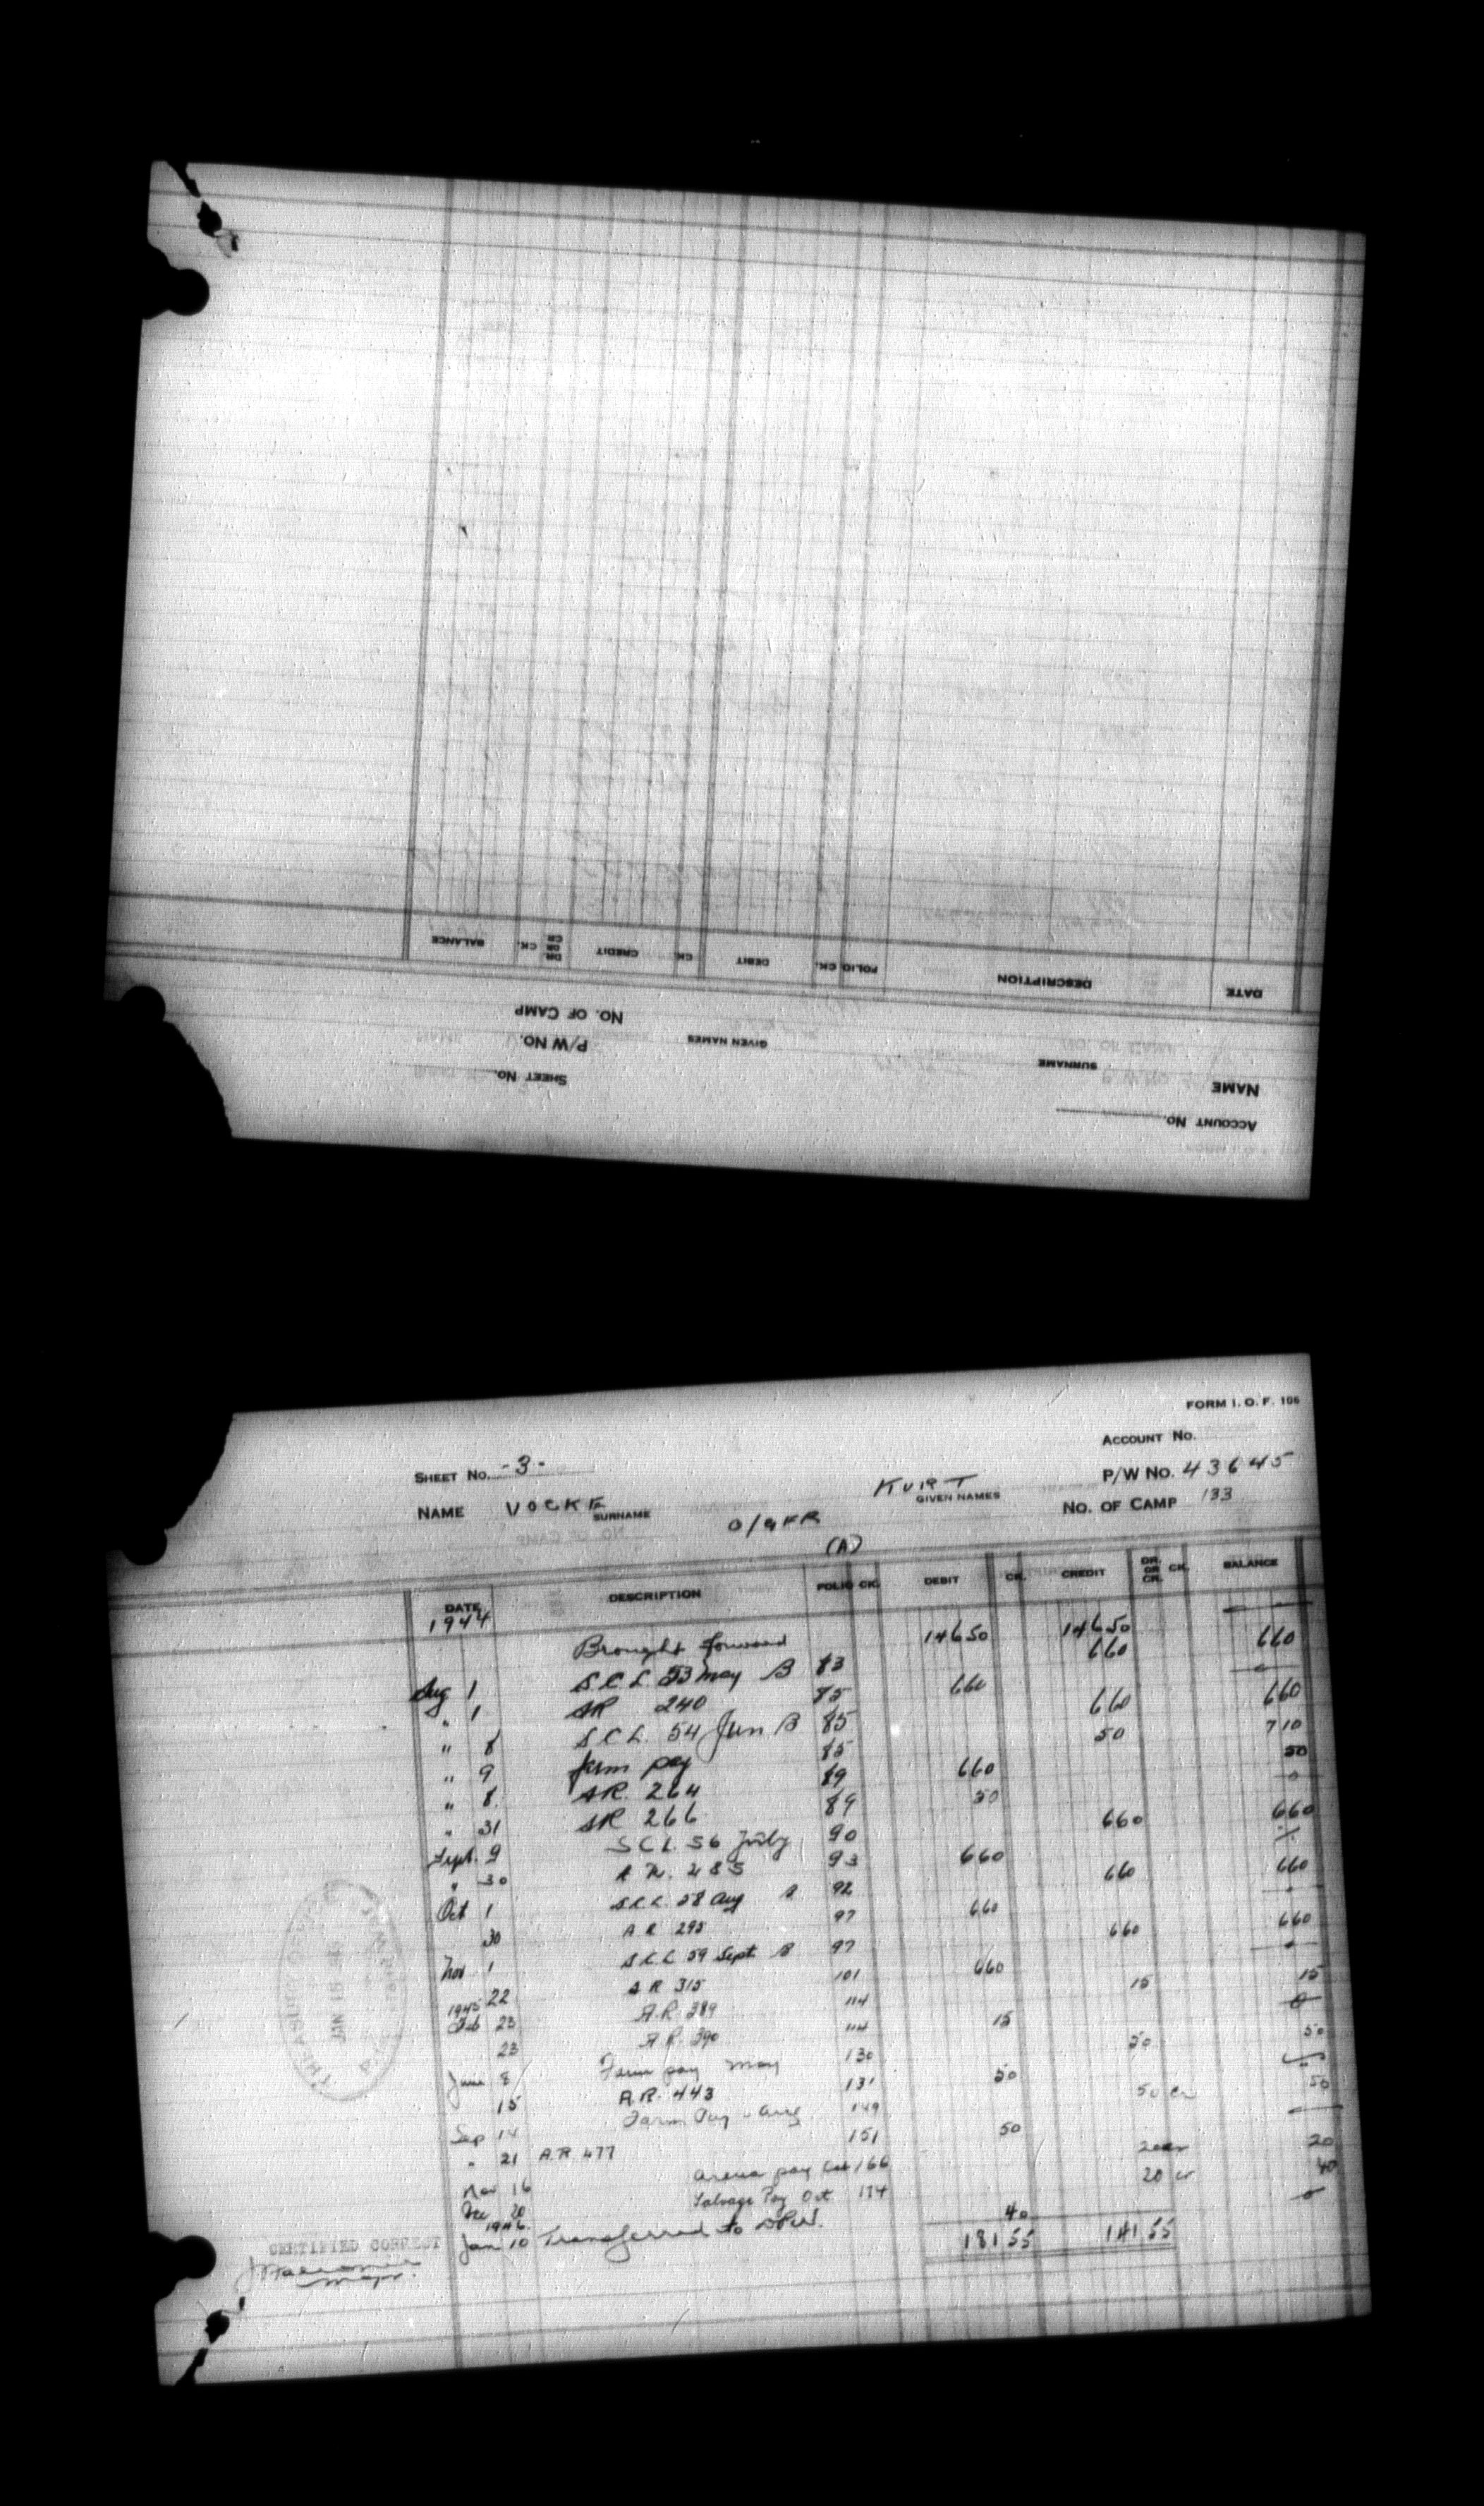 ACCOUNT No.
NAME SURNAME GIVEN NAMES
SHEET No.
P/W No.
No. OF CAMP
DATE DESCRIPTION FOLIO CK. DEBIT CK. CREDIT DR. OR CR. CK. BALANCE
FORM I. O. F. 106
ACCOUNT No.
SHEET No. - 3 -
P/W No. 43645
NAME VOCKE SURNAME KURT GIVEN NAMES
No. OF CAMP 133
O/GFR
(A)
DATE DESCRIPTION FOLIO CK. DEBIT CK. CREDIT DR. OR CR. CK. BALANCE
1944
Brought forward 146 50 146 50
Aug 1 S.C.L. 53 May B 83 6 60 6 60
" 1 AR 240 85 6 60
" 8 S.C.L. 54 Jun B 85 6 60 6 60
" 9 farm pay 85 50 7 10
" 8 AR. 264 89 6 60 50
" 31 AR 266 89 50 0
Sept. 9 S C L. 56 July 90 6 60 6 60
" 30 93 6 60
Oct 1 S.C.L. 58 Aug 92 6 60 6 60
30 A R 295 97 6 60
Nov 1 S C L 59 Sept B 97 6 60 6 60
22 A R 315 101 6 60
1945
Feb 23 A.R. 389 114 15 15
23 A R. 390 114 15 0
June 8 Farm pay May 130 50 50
15 A.R. 443 131 50
Sep 14 Farm Pay - Aug 149 50 Cr 50
" 21 A.R. 477 151 50
Nov 16 pay Oct 166 20 cr 20
Dec 20 Salvage Pay Oct 174 20 cr 40
1946
Jan 10 Transferred to DPW. 40 0
181 55 181 55
CERTIFIED CORRECT
Major.
TREASURY OFFICE
JAN 16 1946